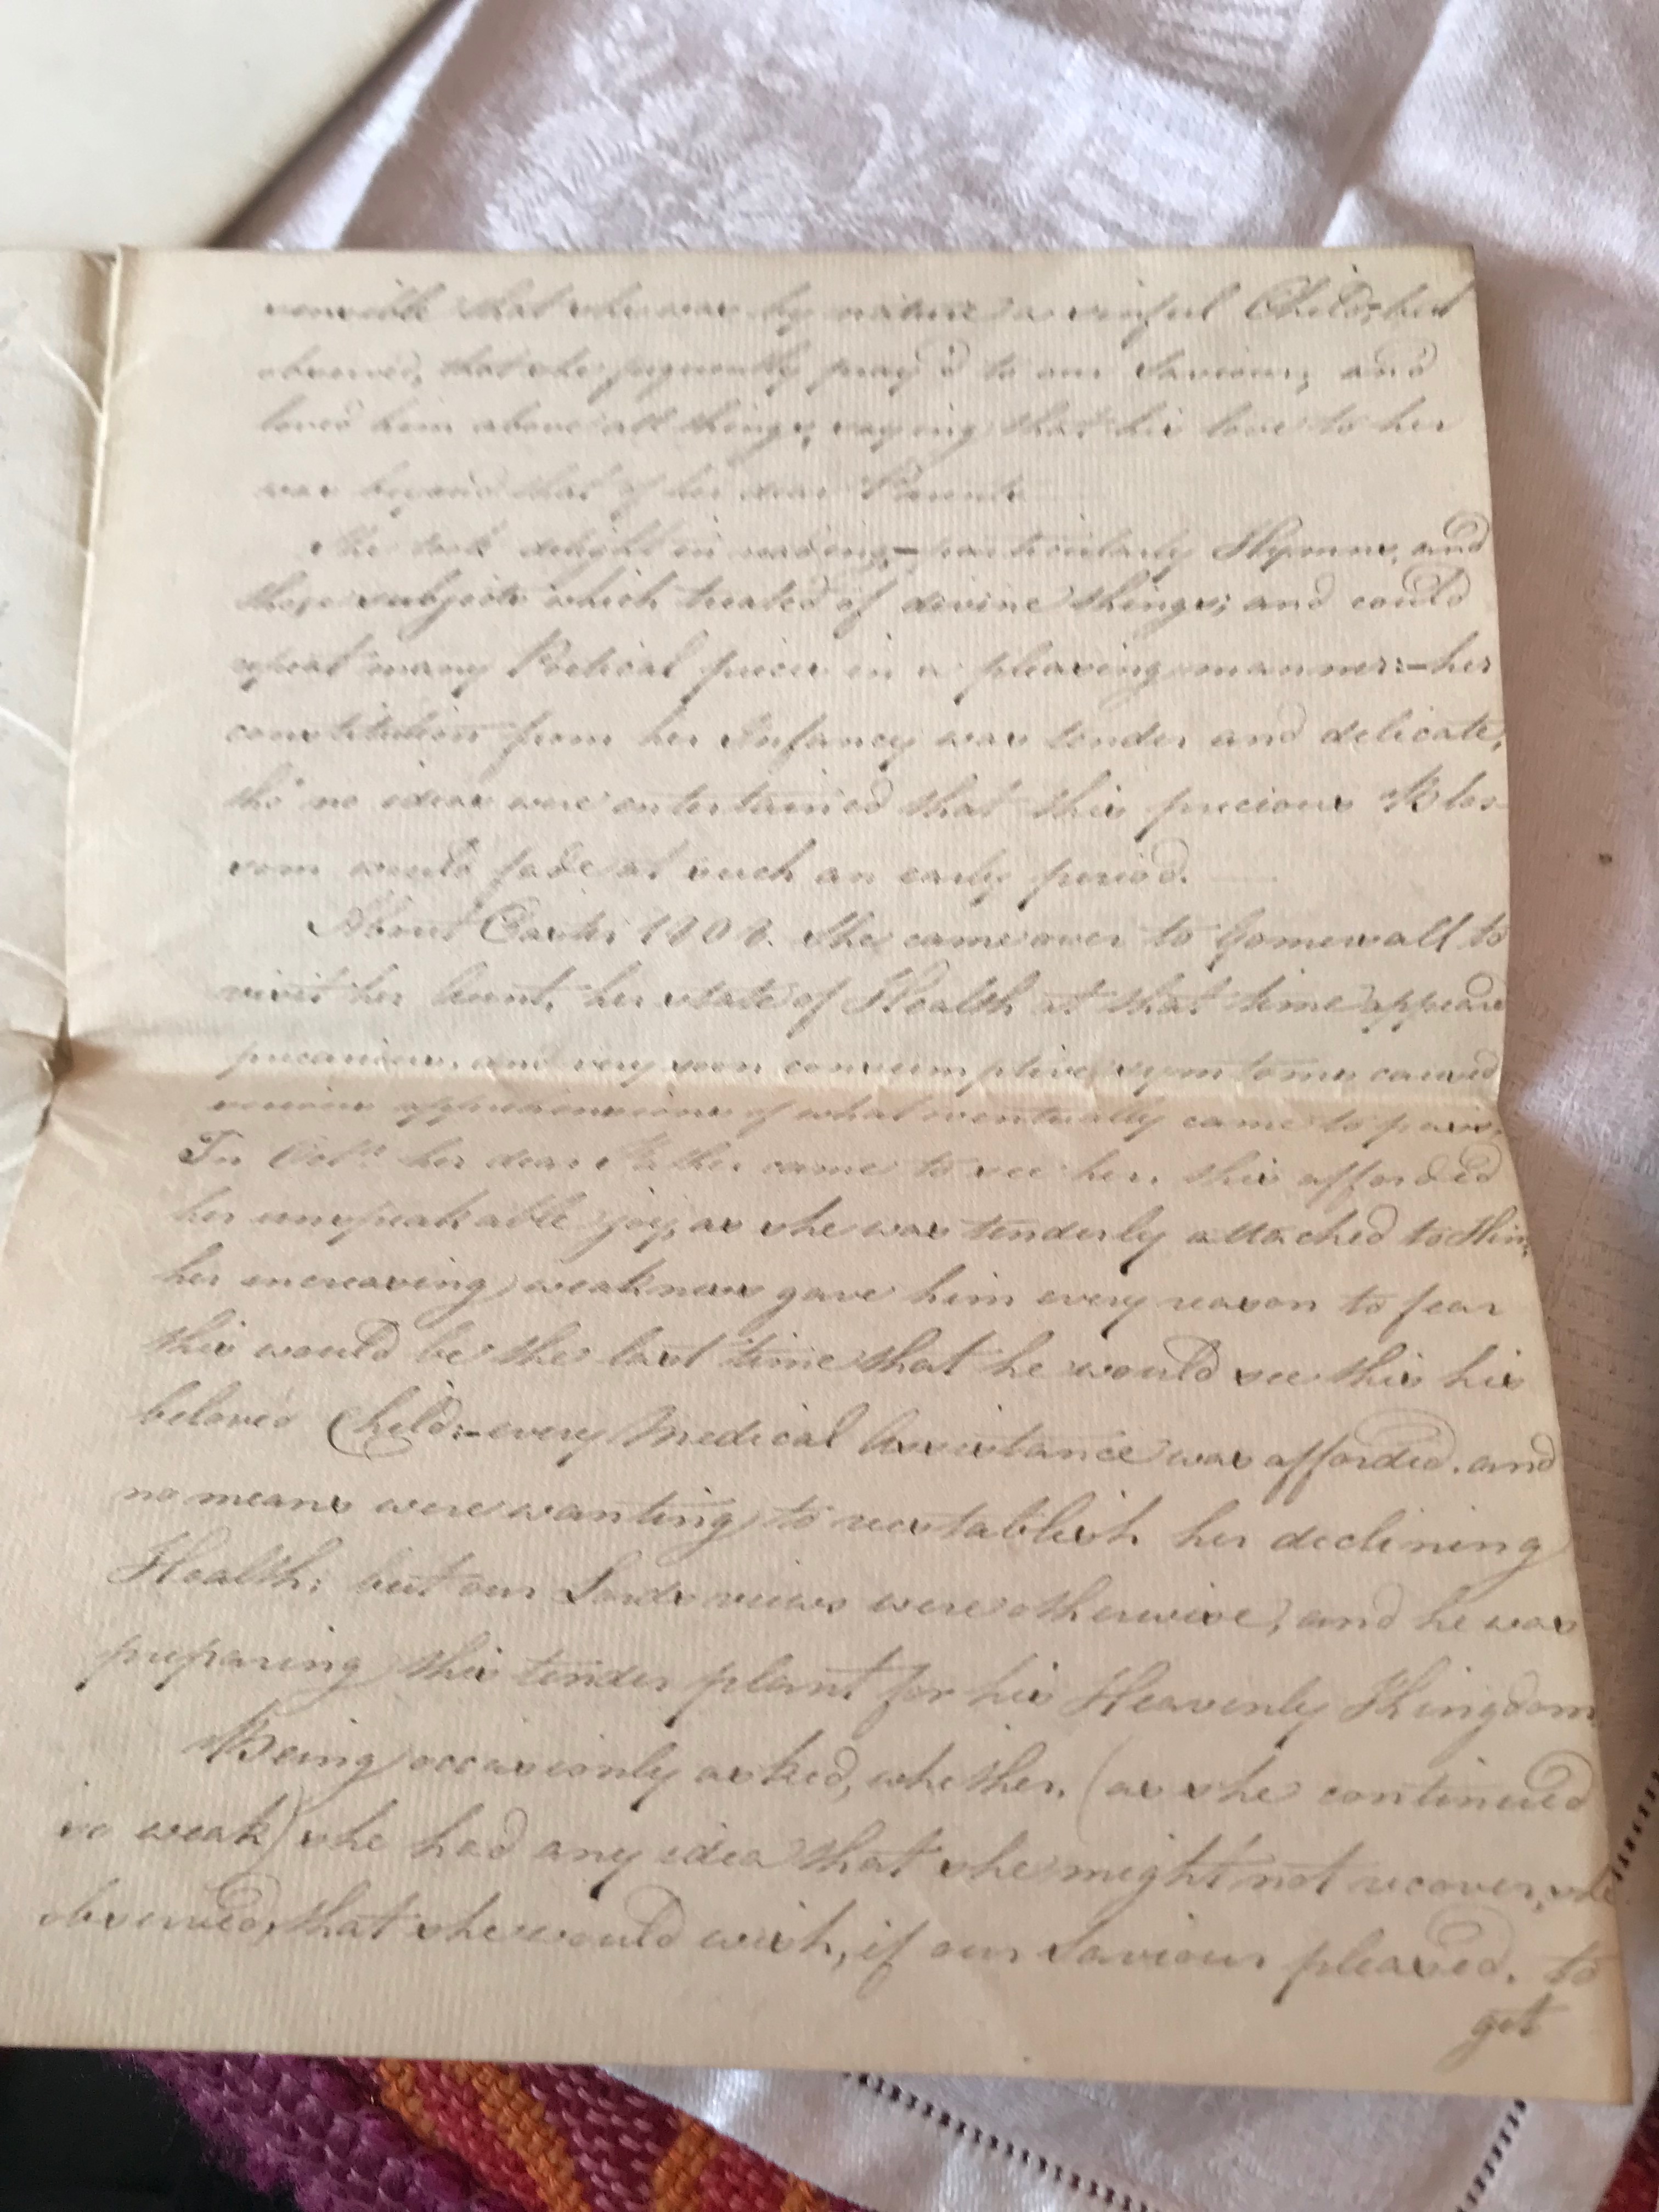 sensible that she was by nature a sinful Child, but
observed, that she frequently pray'd to our Saviour, and
loved him above all things, saying that his love to her
was beyond that of her dear Parents
She took delight in reading,— particularly Hymns, and
those subjects which treated of divine things; and could
repeat many Poetical pieces in a pleasing manner:— her
constitution from her Infancy was tender and delicate,
tho' no ideas were entertained that this precious Blos-
som would fade at such an early period.
About Easter she came over to Gomersall to
visit her Aunt, her state of Health at that time appeard
precarious, and very soon consumptive symtoms caused
serious apprehensions of what eventually came to pass.
In Octr. her dear Father came to see her, this afforded
her unspeakable joy, as she was tenderly attached to Him;
her encreasing weakness gave him every reason to fear
this would be the last time that he would see this his
beloved Child:— every Medical Assistance was afforded, and
no means were wanting to reestablish her declining
Health; but our Lords views were otherwise, and he was
preparing this tender plant for his Heavenly Kingdom.
Being occasionly asked, whether, (as she continued
so weak) she had any idea that she might not recover, she
observed, that she would wish, if our Saviour pleased, to
get